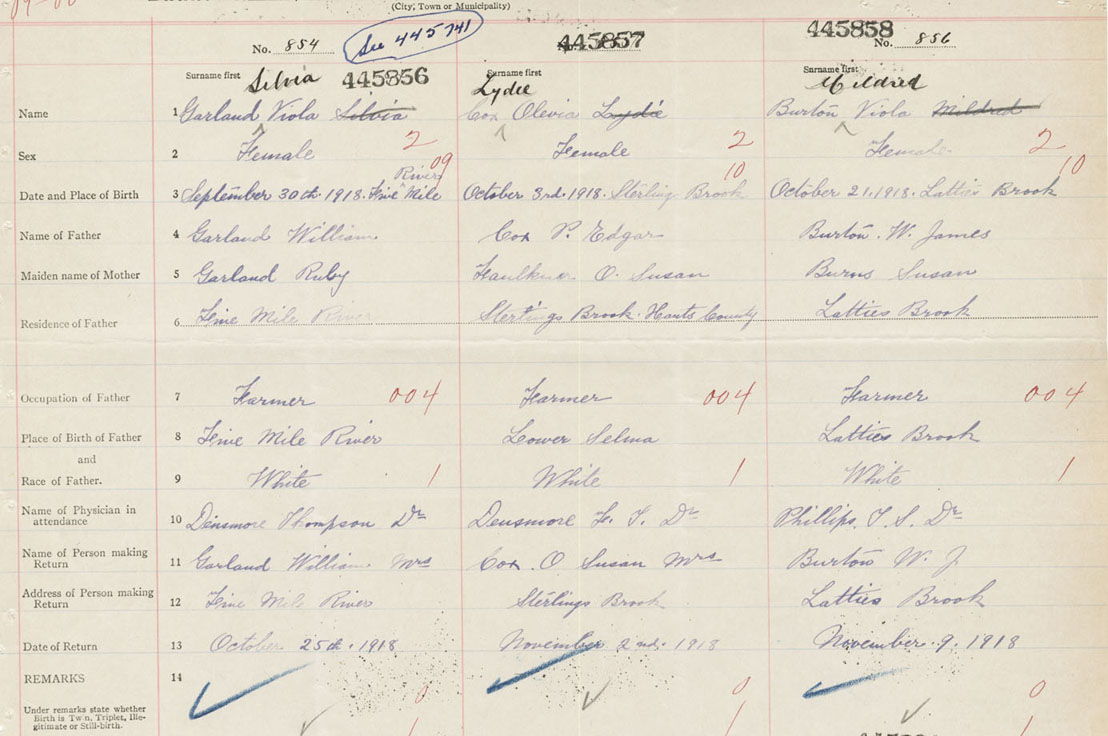 (City, Town or Municipality)
No. 854 See 445741 445857 445858 No. 856
Surname first Silvia 445856 Surname first Lydie Surname first Mildred
Name 1 Garland Viola Silvia Cox Olevia Lydie Burton Viola Mildred
Sex 2 Female 2 Female 2 Female 2
River 09 10 10
Date and Place of Birth 3 September 30th. 1918. Five Mile October 3rd. 1918. Sterling Brook October 21, 1918. Latties Brook
Name of Father 4 Garland William Cox P. Edgar Burton. W. James
Maiden name of Mother 5 Garland Ruby Faulkner O. Susan Burns Susan
Residence of Father 6 Five Mile River Sterlings Brook. Hants County Latties Brook
Occupation of Father 7 Farmer 004 Farmer 004 Farmer 004
Place of Birth of Father 8 Five Mile River Lower Selma Latties Brook
and
Race of Father. 9 White 1 White 1 White 1
Name of Physician in
attendance 10 Densmore Thompson Dr Densmore F. T. Dr Phillips, T. S. Dr
Name of Person making
Return 11 Garland William Mrs Cox. O Susan Mrs Burton W. J
Address of Person making
Return 12 Five Mile River Sterlings Brook Latties Brook
Date of Return 13 October 25th. 1918 November 2nd. 1918 November. 9. 1918
REMARKS 14
0 0 0
Under remarks state whether
Birth is Twin, Triplet, Ille-
gitimate or Still-birth. 1 1 1